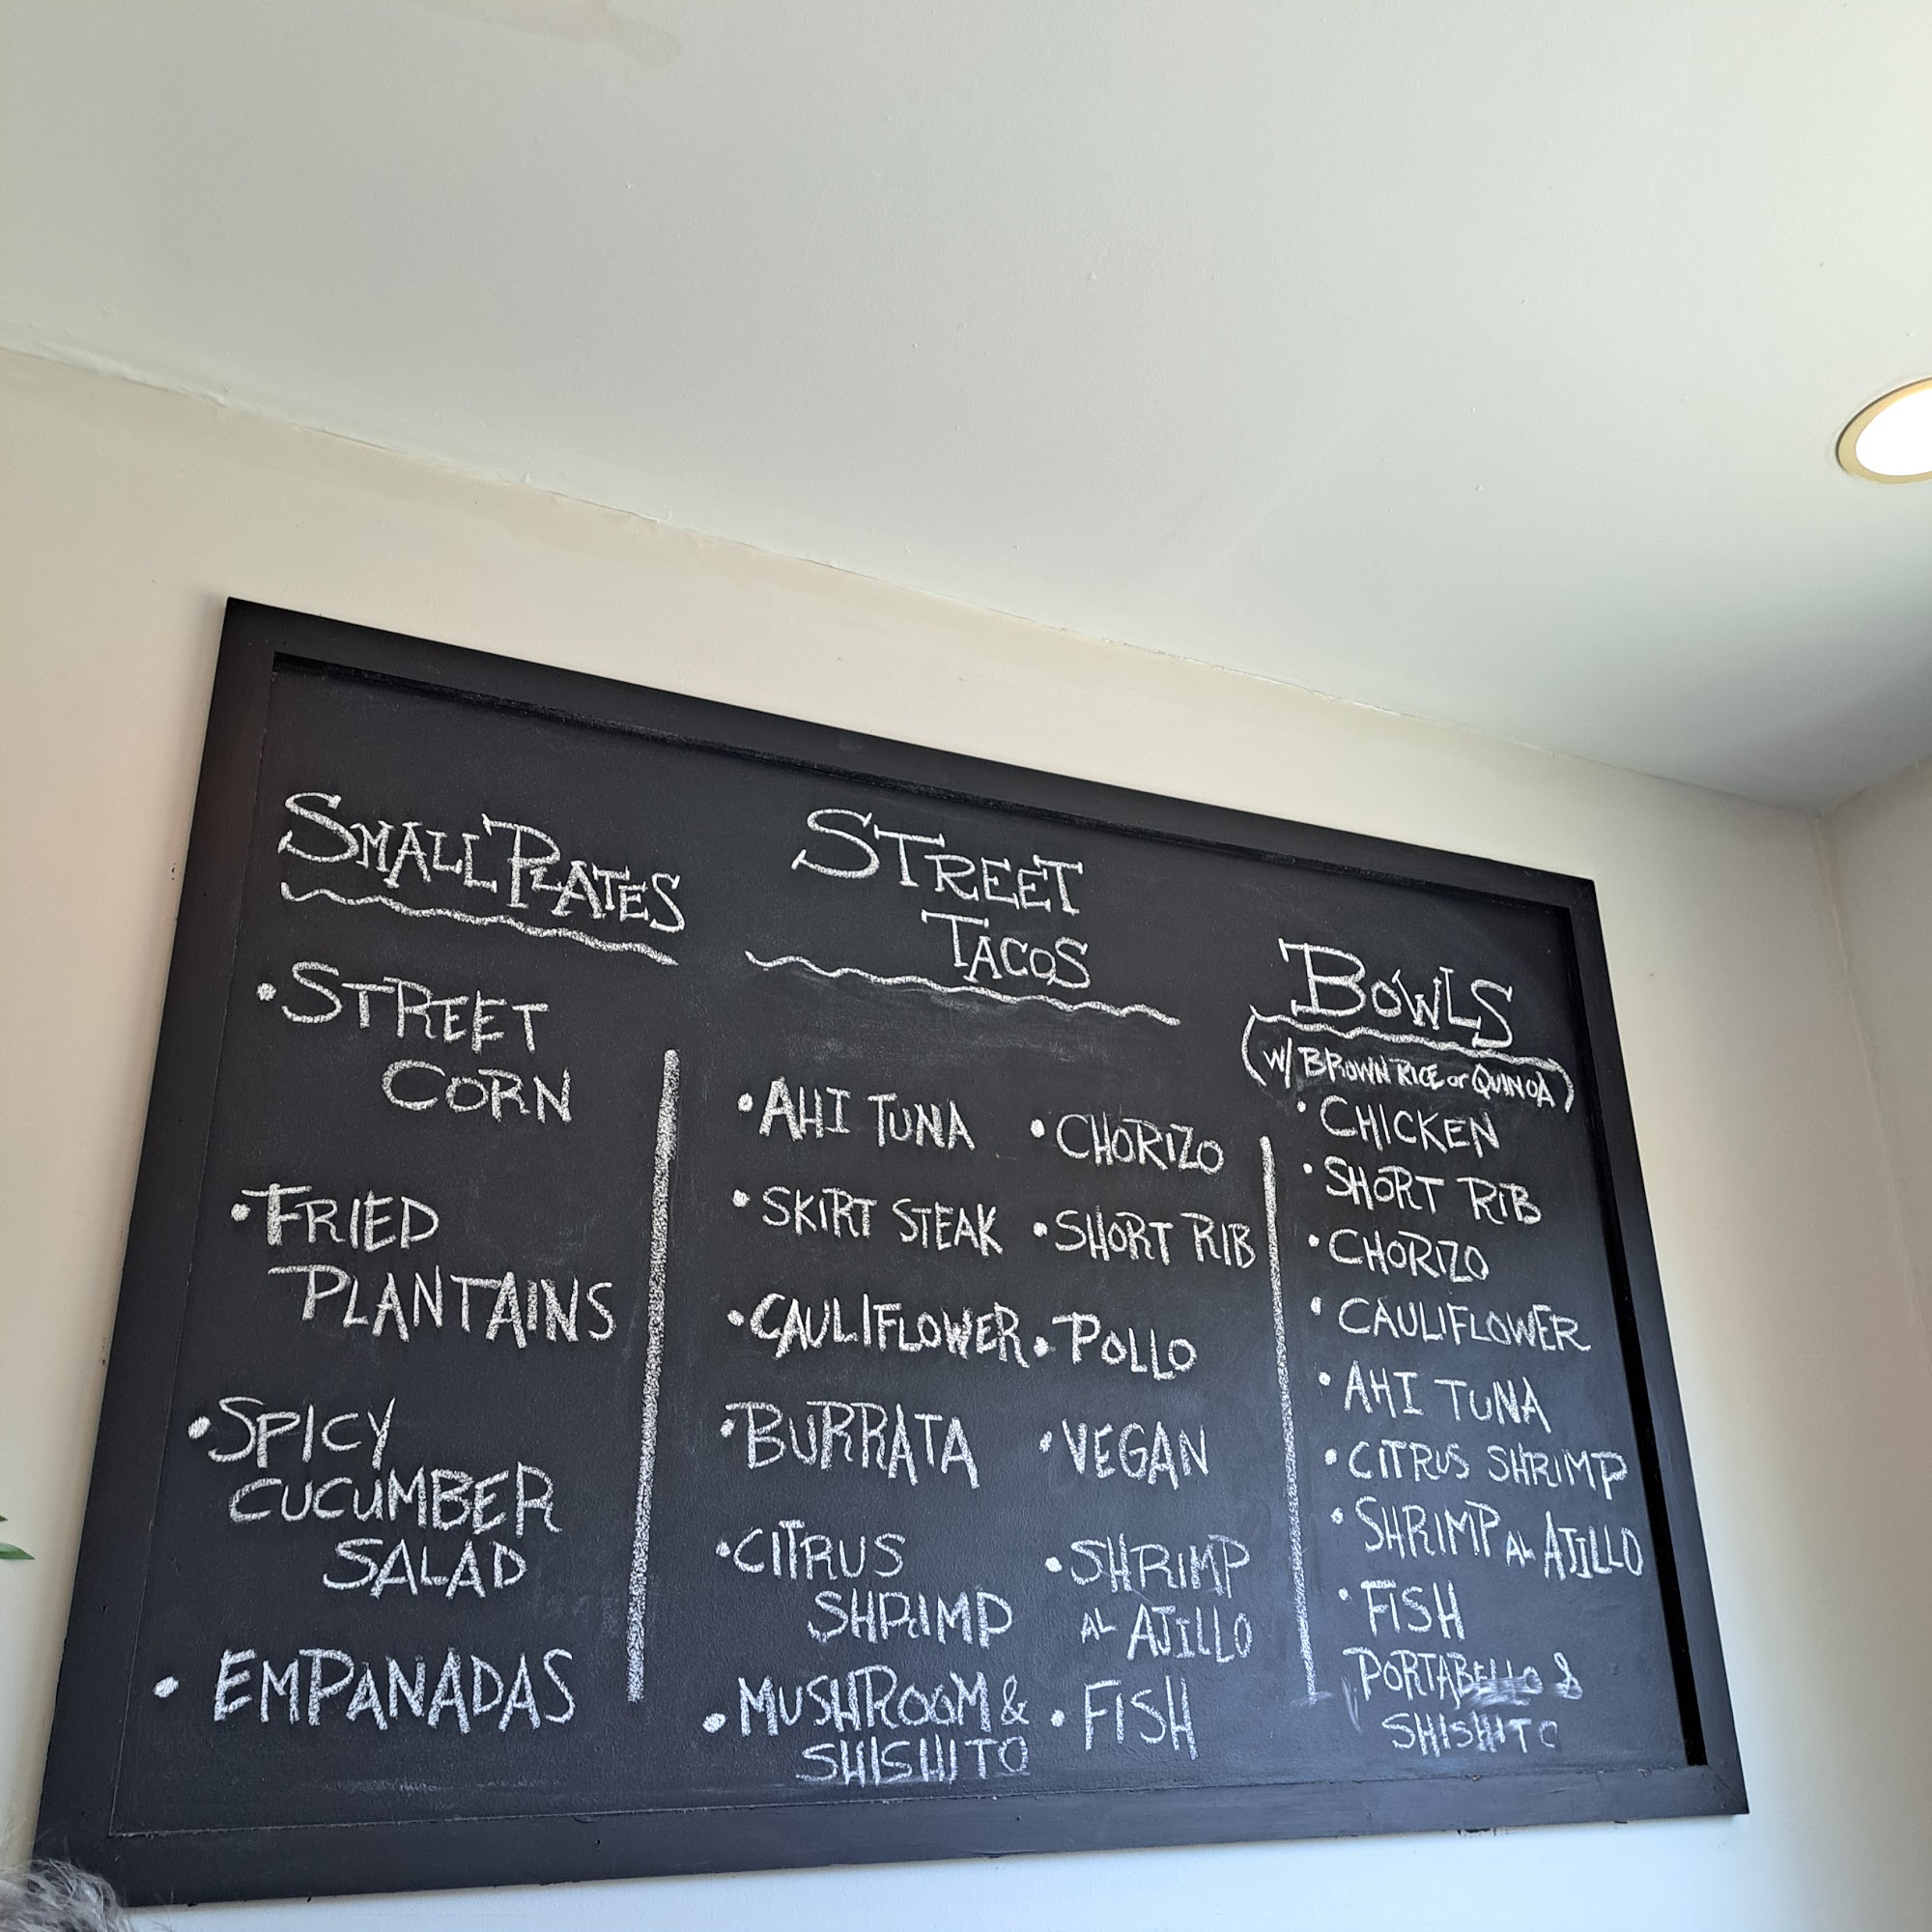 SMALL PLATES
• STREET
CORN
• FRIED
PLANTAINS
• SPICY
CUCUMBER
SALAD
• EMPANADAS
STREET
TACOS
• AHI TUNA • CHORIZO
• SKIRT STEAK • SHORT RIB
• CAULIFLOWER • POLLO
• BURRATA • VEGAN
• CITRUS
SHRIMP
• SHRIMP
AL AJILLO
• MUSHROOM &
SHISHITO
• FISH
BOWLS
(W/ BROWN RICE or QUINOA)
• CHICKEN
• SHORT RIB
• CHORIZO
• CAULIFLOWER
• AHI TUNA
• CITRUS SHRIMP
• SHRIMP AL AJILLO
• FISH
PORTABELLO &
SHISHITO